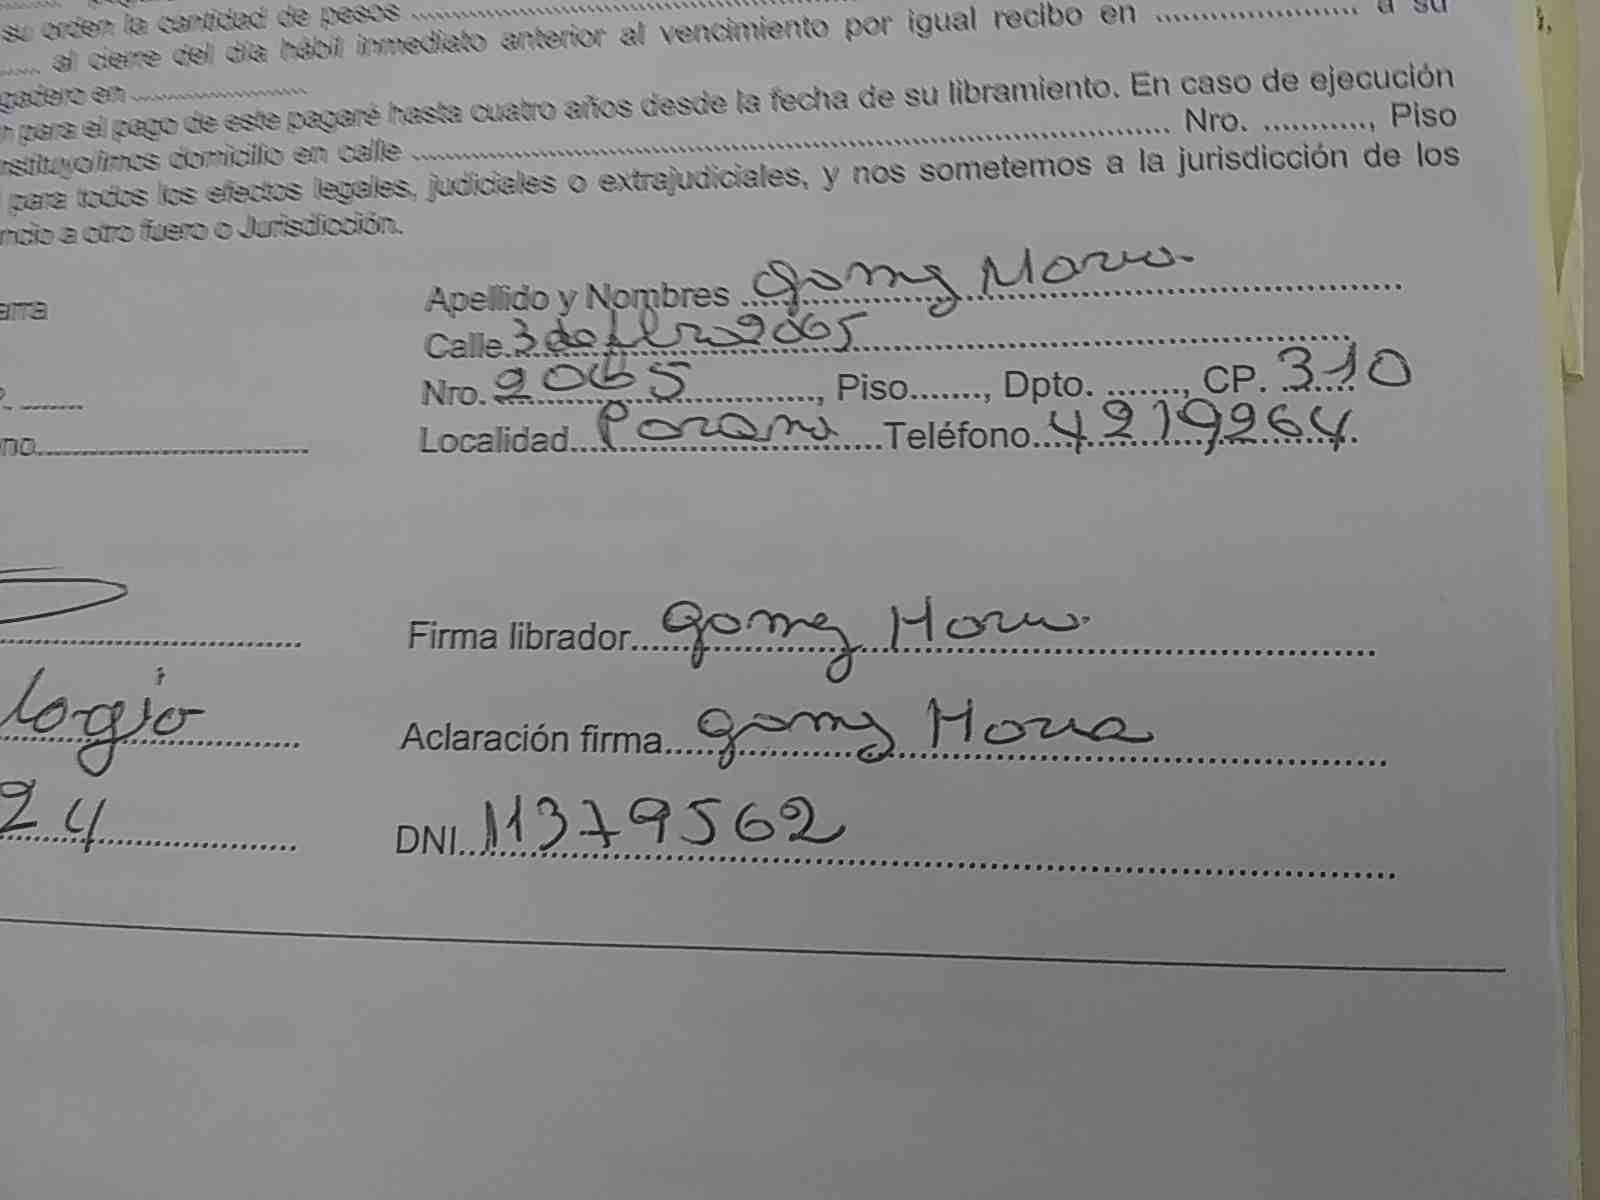 su orden la cantidad de pesos ....................
...... al cierre del día hábil inmediato anterior al vencimiento por igual recibo en .................... a su
gadero en ....................
para el pago de este pagaré hasta cuatro años desde la fecha de su libramiento. En caso de ejecución
nstituyo/imos domicilio en calle .................... Nro. ............, Piso
para todos los efectos legales, judiciales o extrajudiciales, y nos sometemos a la jurisdicción de los
ncia a otro fuero o Jurisdicción.
arra Apellido y Nombres Gomez Maria
Calle 3 de 2065
Nro. 2065, Piso......., Dpto. ......., CP. 310
no.................... Localidad Parana Teléfono 4219264
Firma librador Gomez Maria
logio Aclaración firma Gomez Maria
24 DNI 11379562